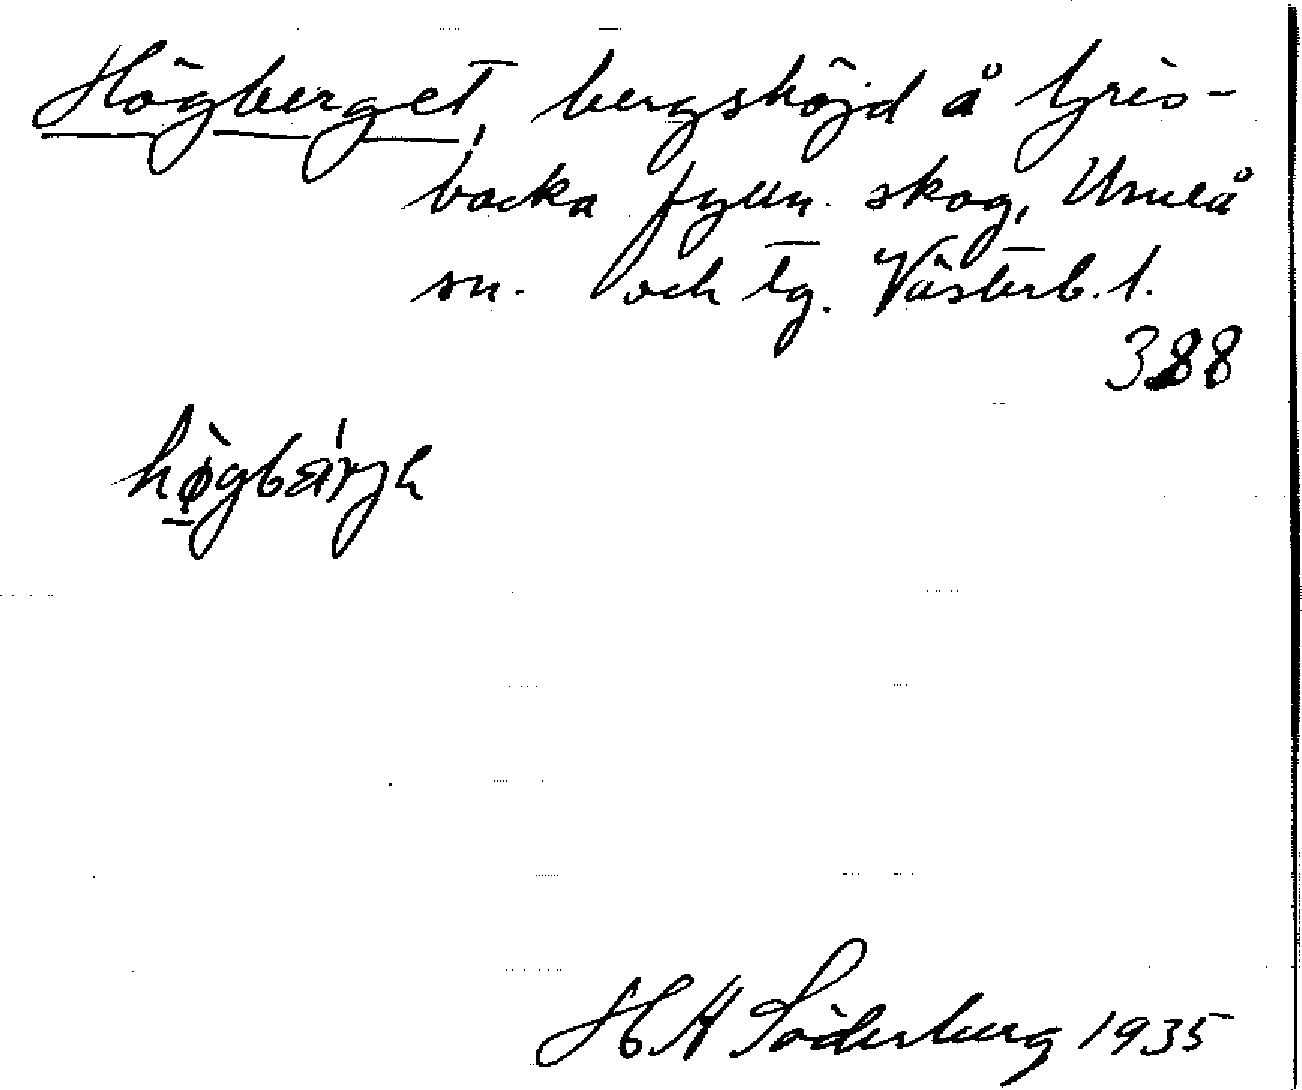 Högberget, bergshöjd å Gris-
backa
skog, Umeå
sn. och tg. Västerb. l.
388
H A Söderberg 1935